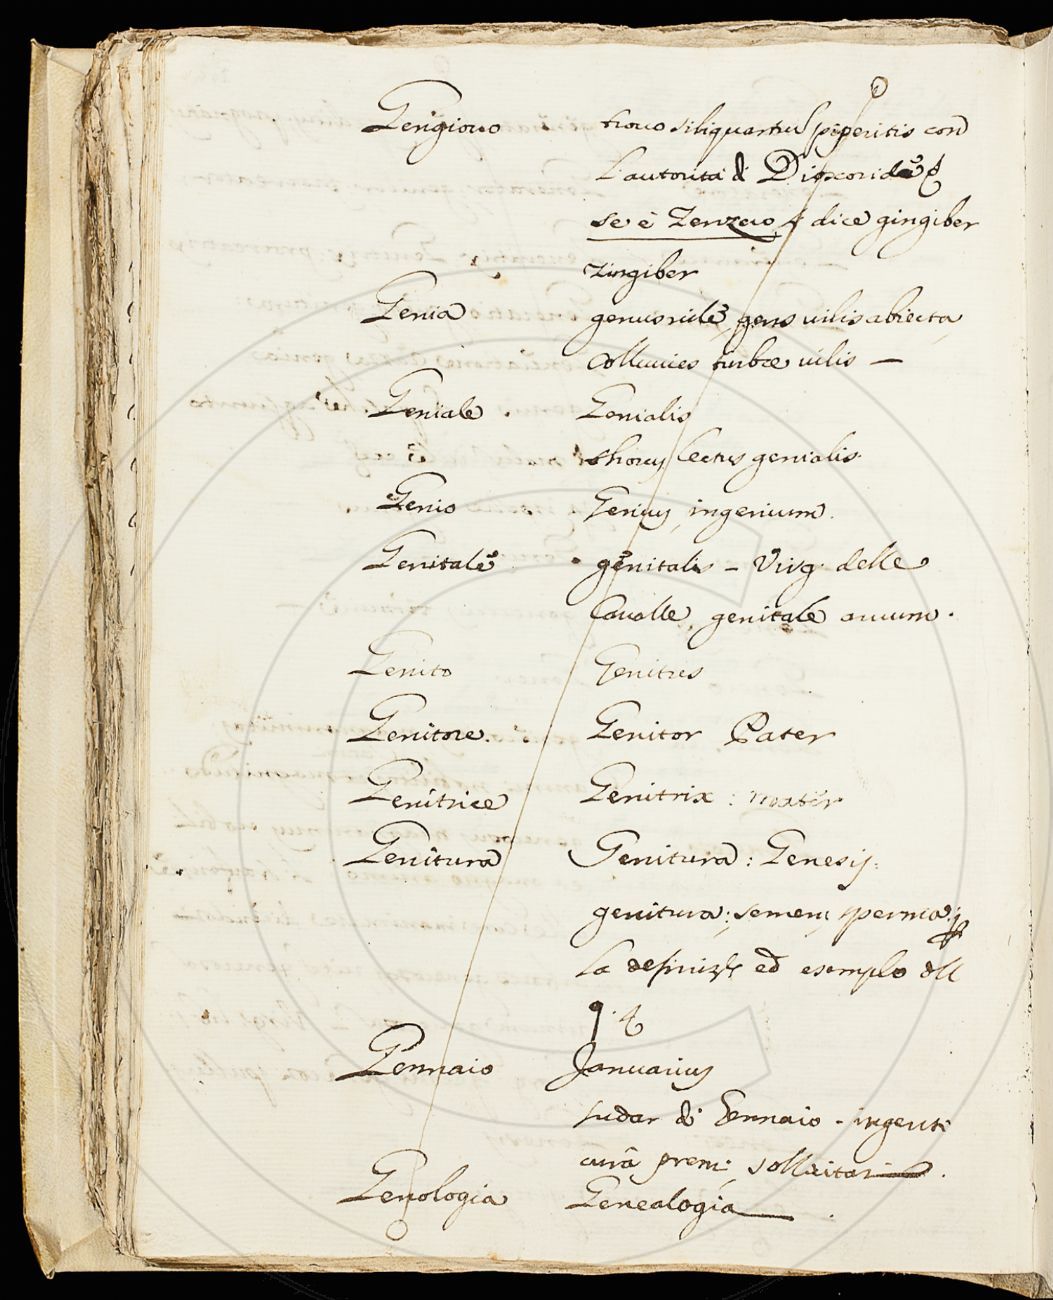 Gengiouo trouo siliquastru piperitis con
l'autorità di Dioscoride
se è Zenzero dice gingiber
zingiber
Genia genus vile, gens uilis abiecta,
Colluuies turbae uilis —
Geniale . Genialis
thorus lectus genialis
Genio Genius, ingenium.
Genitale genitalis - Virg. delle
Caualle, genitale aruum.
Genito Genitus
Genitore. Genitor Pater
Genitrice Genitrix : mater
Genitura Genitura : Genesis:
genitura; semen; sperma;
La ed esempio
Gennaio Januarius
sudar di Gennaio - ingenti
curâ premi, sollicitari.
Genologia Genealogia